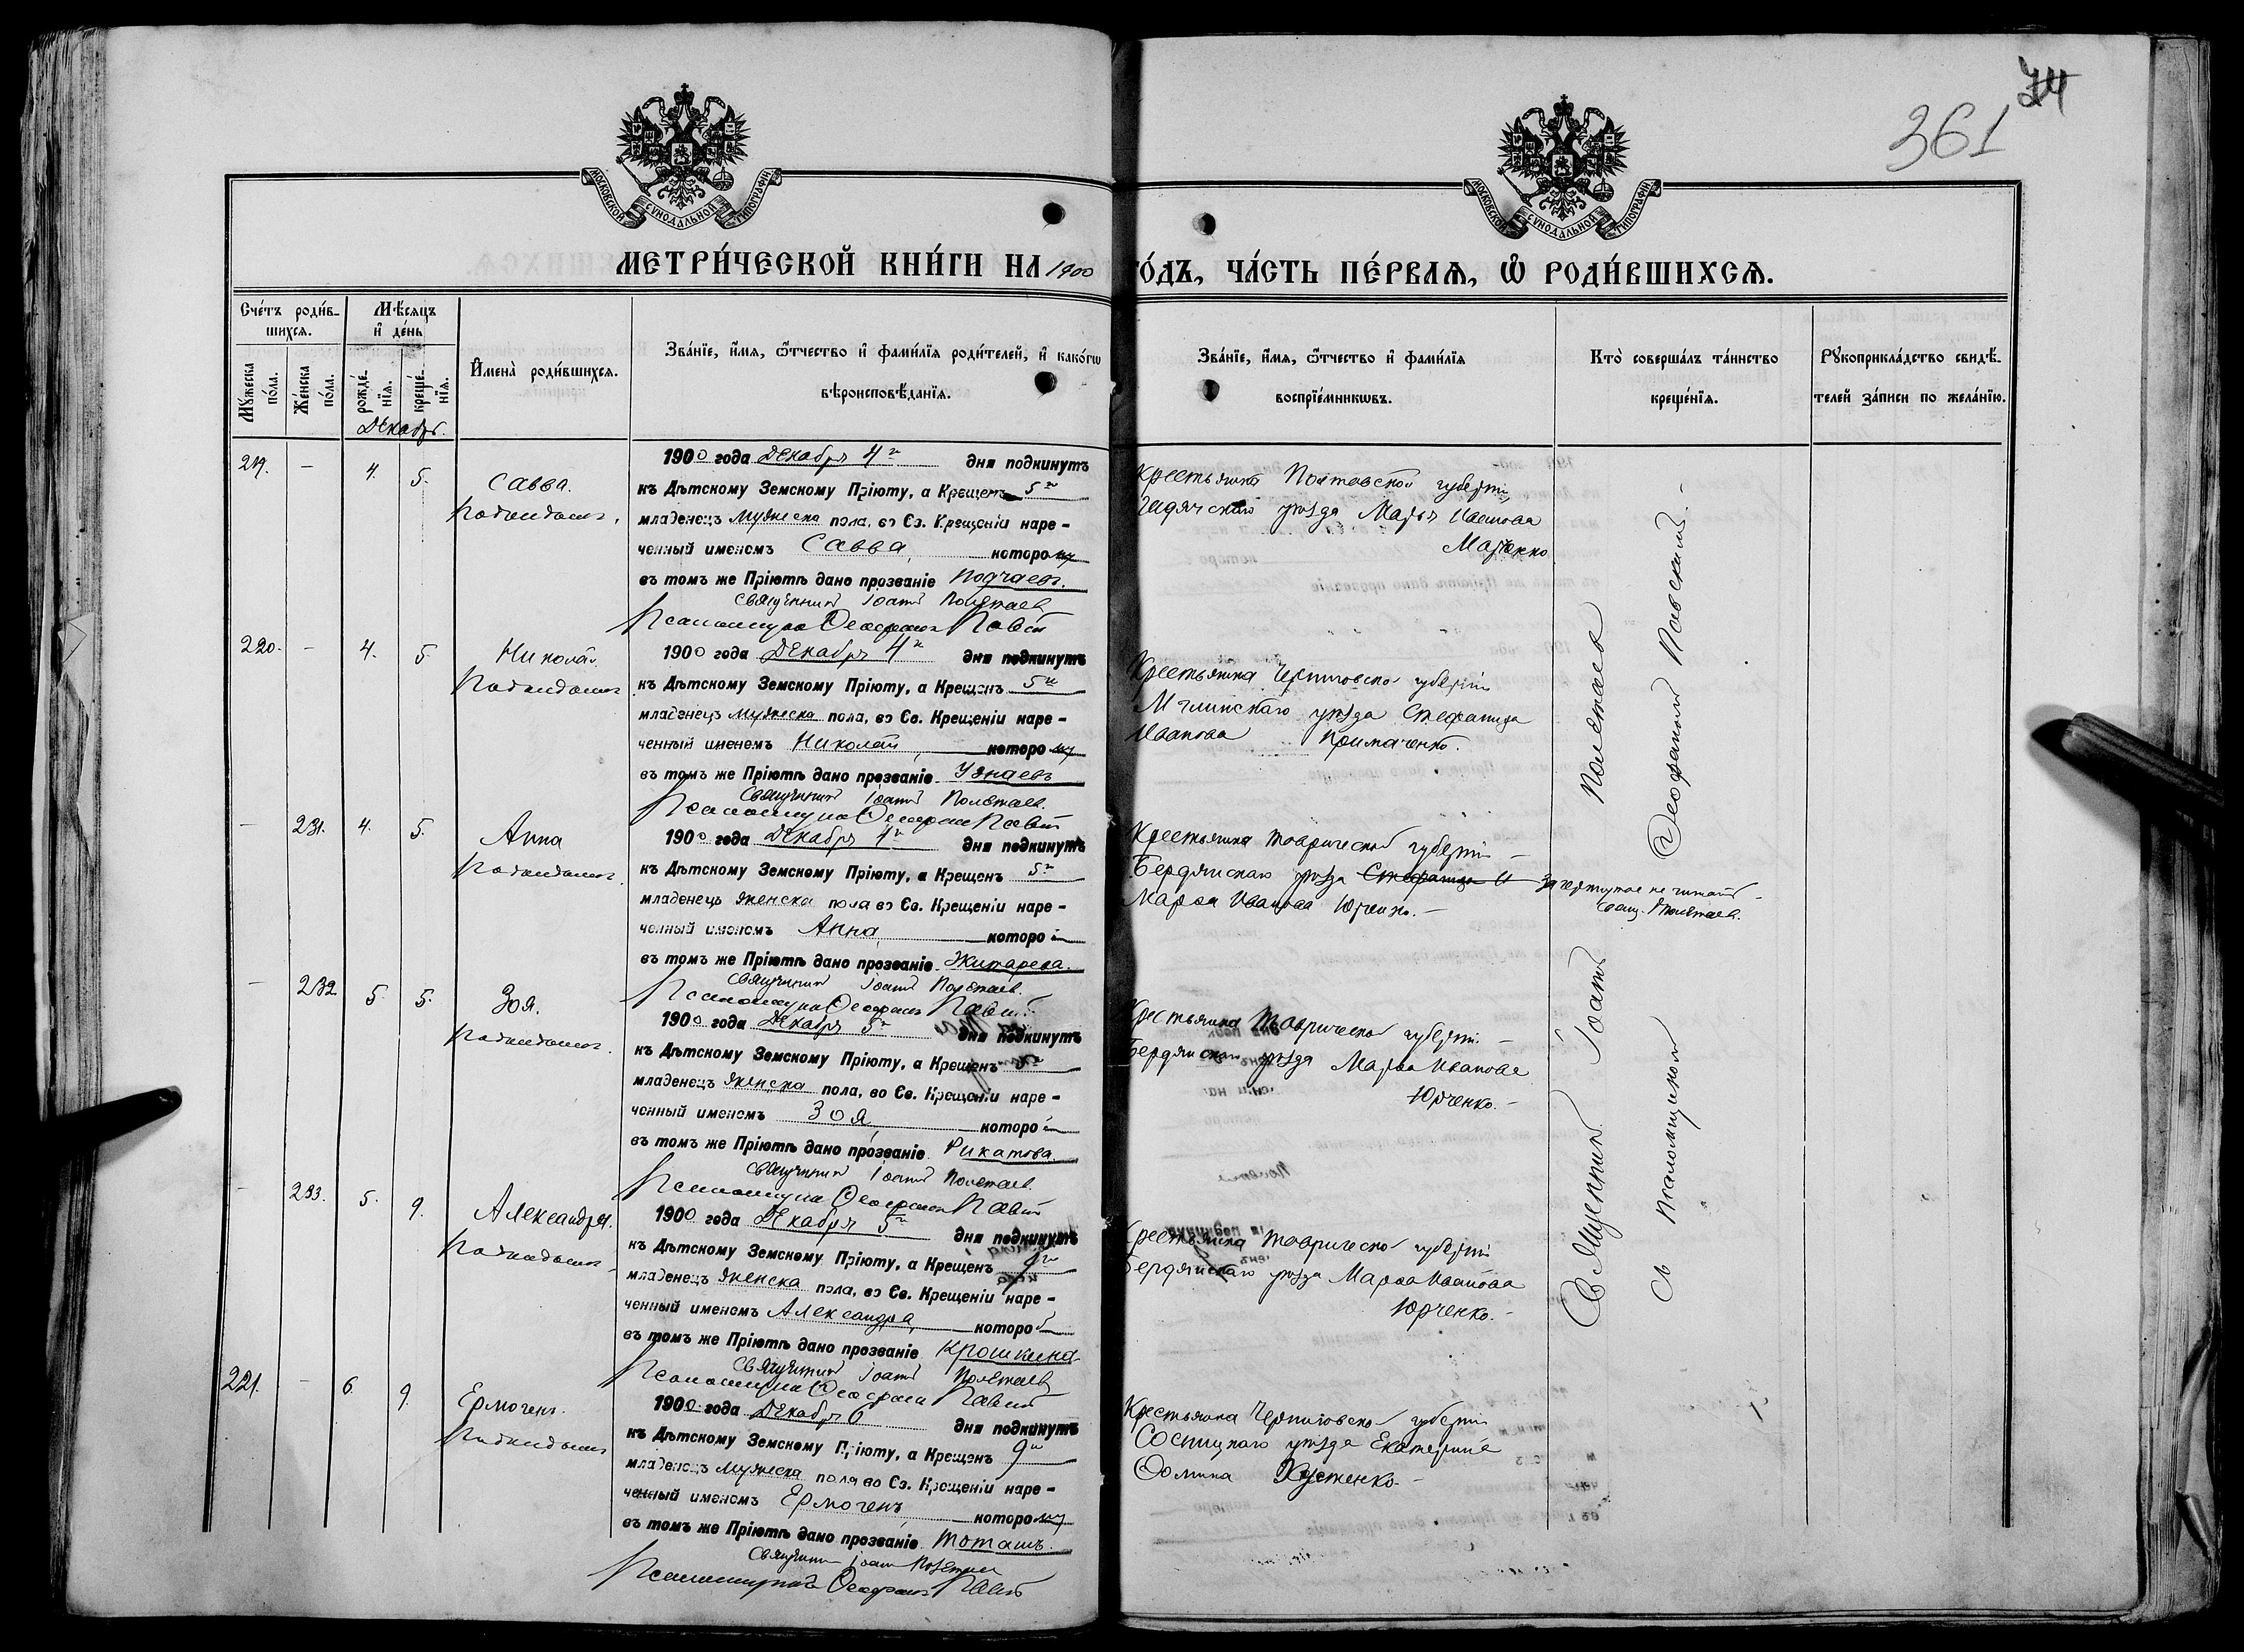 74
361
МОСКОВСКОЙ СѴНОДАЛЬНОЙ ТИПОГРАФІИ
МОСКОВСКОЙ СѴНОДАЛЬНОЙ ТИПОГРАФІИ
МЕТРИ́ЧЕСКОЙ КНИ́ГИ НА 1900
ГО́ДЪ, ЧА́СТЬ ПЕ́РВАѦ, Ѡ РОДИ́ВШИХСѦ.
Сче́тъ роди́в-
шихсѧ.
Мѣ́сѧцъ
и҆ де́нь
Мꙋ́жеска
по́ла.
Же́нска
по́ла.
рожде́-
нїѧ.
креще́-
нїѧ.
Декабрь.
И҆мена̀ роди́вшихсѧ.
Зва́нїе, и҆́мѧ, ѻ҆́тчество и҆ фами́лїѧ роди́телей, и҆ како́гѡ
вѣроисповѣ́данїѧ.
Зва́нїе, и҆́мѧ, ѻ҆́тчество и҆ фами́лїѧ
воспрїе́мникѡвъ.
Кто̀ соверша́лъ та́инство
креще́нїѧ.
Рꙋкоприкла́дство свидѣ́-
телей за́писи по жела́нїю.
219. - 4. 5. Савва.
Подкидышъ.
1900 года Декабря 4го дня подкинутъ
къ Дѣтскому Земскому Пріюту, а Крещенъ 5го
младенецъ мужеска пола, во Св. Крещеніи наре-
ченный именемъ Савва, которому
въ томъ же Пріютѣ дано прозваніе Подчаевъ.
Священникъ Іоаннъ Полетаев
Псаломщикъ Ѳеофанъ Павскій
Крестьянка Полтавской губерніи
Гадячскаго уѣзда Марья Иванова
Марченко
220. - 4. 5. Николай.
Подкидышъ.
1900 года Декабря 4го дня подкинутъ
къ Дѣтскому Земскому Пріюту, а Крещенъ 5го
младенецъ мужеска пола, во Св. Крещеніи наре-
ченный именемъ Николай, которому
въ томъ же Пріютѣ дано прозваніе Узнаевъ
Священникъ Іоаннъ Полетаев.
Псаломщикъ Ѳеофанъ Павскій
Крестьянка Черниговской губерніи
Мглинскаго уѣзда Стефанида
Иванова Примаченко.
- 231. 4. 5. Анна
Подкидышъ.
1900 года Декабря 4го дня подкинутъ
къ Дѣтскому Земскому Пріюту, а Крещенъ 5го
младенець женска пола во Св. Крещеніи наре-
ченный именемъ Анна, которой
въ томъ же Пріютѣ дано прозваніе Житарева.
Священникъ Іоаннъ Полетаев.
Псаломщикъ Ѳеофанъ Павскій
Крестьянка Таврической губерніи
Бердянскаго уѣзда Стефанида И
Марѳа Иванова Юрченко.
Зачеркнутое не читать
Свящ. Полетаев.
- 232. 5. 5. Зоя.
Подкидышъ.
1900 года Декабря 5го дня подкинутъ
къ Дѣтскому Земскому Пріюту, а Крещенъ 5го
младенецъ женска пола, во Св. Крещеніи наре-
ченный именемъ Зоя, которой
въ томъ же Пріютѣ дано прозваніе Рикатова.
Священникъ Іоаннъ Полетаев.
Псаломщикъ Ѳеофанъ Павскій
Крестьянка Таврической губерніи
Бердянскаго уѣзда Марѳа Иванова
Юрченко.
- 233. 5. 9. Александра.
Подкидышъ
1900 года Декабря 5го дня подкинутъ
къ Дѣтскому Земскому Пріюту, а Крещенъ 9го
младенецъ женска пола, во Св. Крещеніи наре-
ченный именемъ Александра, которой
въ томъ же Пріютѣ дано прозваніе Крошкина
Священникъ Іоаннъ Полетаев
Псаломщикъ Ѳеофанъ Павскій
Крестьянка Таврической губерніи
Бердянскаго уѣзда Марѳа Иванова
Юрченко.
221. - 6. 9. Ермогенъ.
Подкидышъ
1900 года Декабря 6 дня подкинутъ
къ Дѣтскому Земскому Пріюту, а Крещенъ 9го
младенецъ мужеска пола во Св. Крещеніи наре-
ченный именемъ Ермогенъ, которому
въ томъ же Пріютѣ дано прозваніе Тоташъ.
Священникъ Іоаннъ Полетаев
Псаломщикъ Ѳеофанъ Павскій
Крестьянка Черниговской губерніи
Сосницкаго уѣзда Екатерина
Ѳомина Хустенко.
Священникъ Іоаннъ Полетаев
съ псаломщикомъ Ѳеофаномъ Павскимъ.